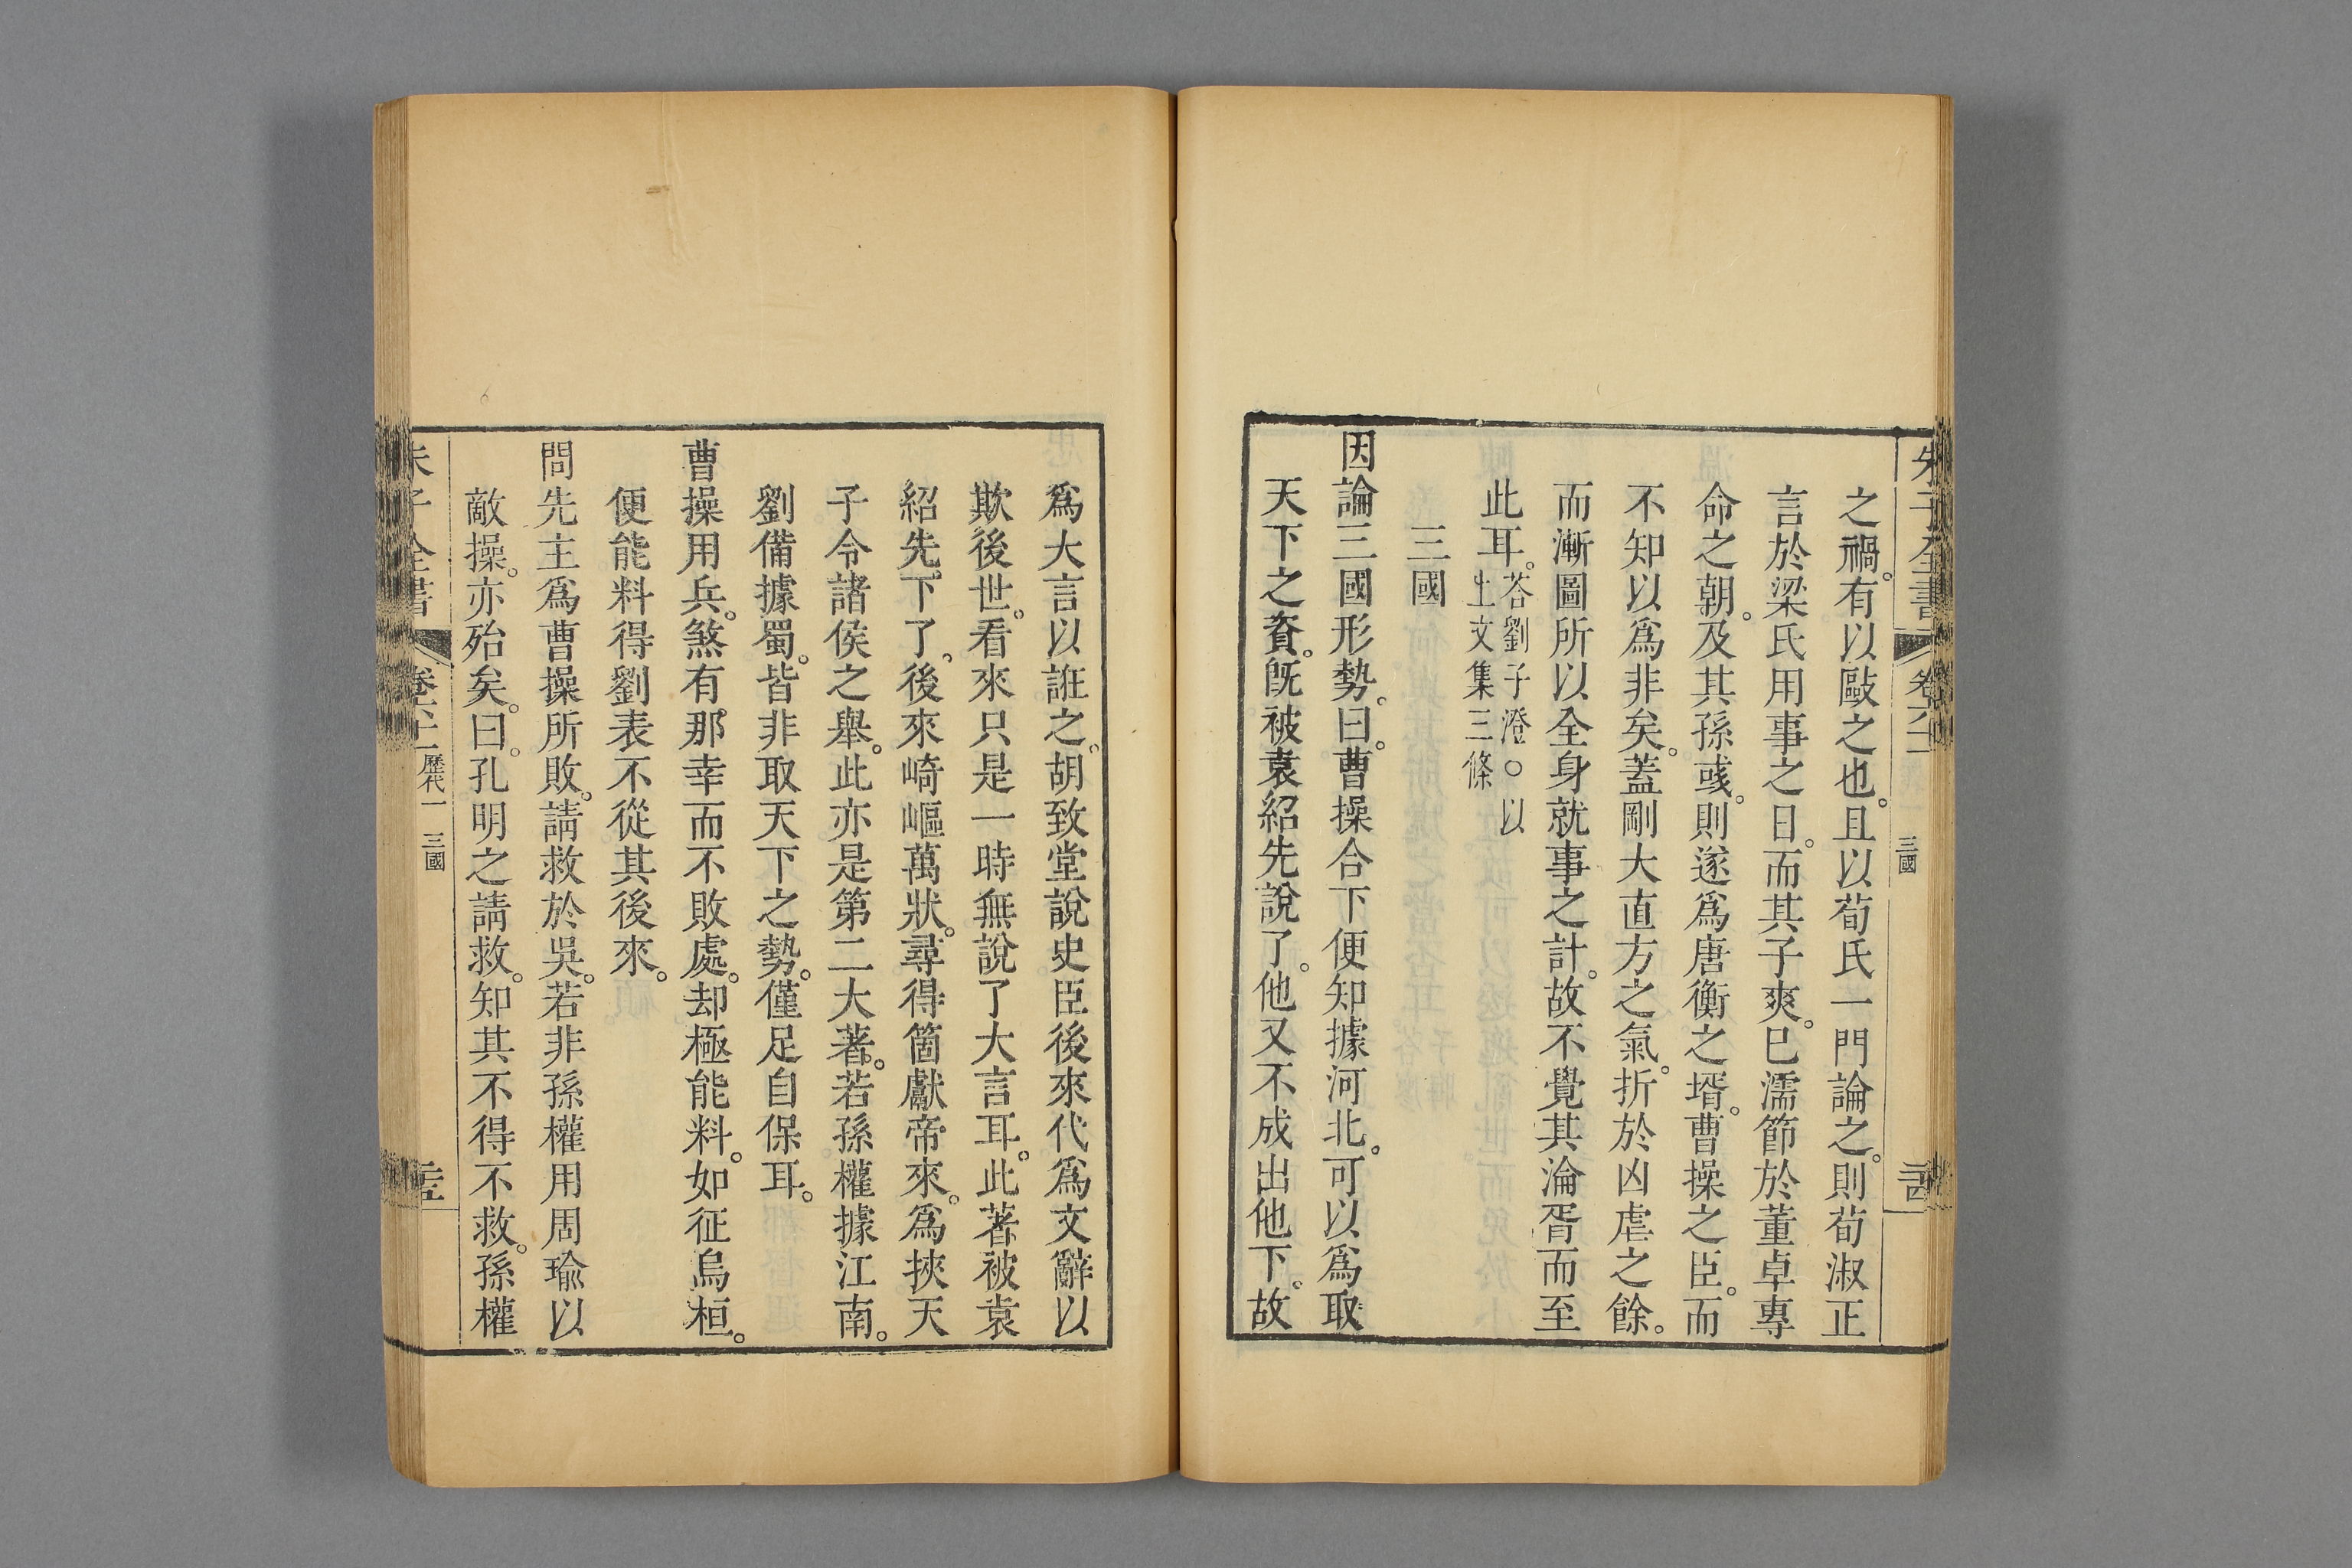 朱子全書 卷六十一 三國 三四
之禍。有以敺之也。且以荀氏一門論之。則荀淑正
言於梁氏用事之日。而其子爽。已濡節於董卓專
命之朝。及其孫彧。則遂爲唐衡之壻。曹操之臣。而
不知以爲非矣。蓋剛大直方之氣。折於凶虐之餘。
而漸圖所以全身就事之計。故不覺其淪胥而至
此耳。荅劉子澄○以
上文集三條
三國
因論三國形勢。曰。曹操合下便知據河北。可以爲取
天下之資。旣被袁紹先說了。他又不成出他下。故
爲大言以誑之。胡致堂說史臣後來代爲文辭以
欺後世。看來只是一時無說了大言耳。此著被袁
紹先下了。後來崎嶇萬狀。尋得箇獻帝來。爲挾天
子令諸侯之舉。此亦是第二大著。若孫權據江南。
劉備據蜀。皆非取天下之勢。僅足自保耳。
曹操用兵。煞有那幸而不敗處。却極能料。如征烏桓。
便能料得劉表不從其後來。
問先主爲曹操所敗。請救於吳。若非孫權用周瑜以
敵操。亦殆矣。曰。孔明之請救。知其不得不救。孫權
朱子全書 卷六十一 歷代一 三國 三五